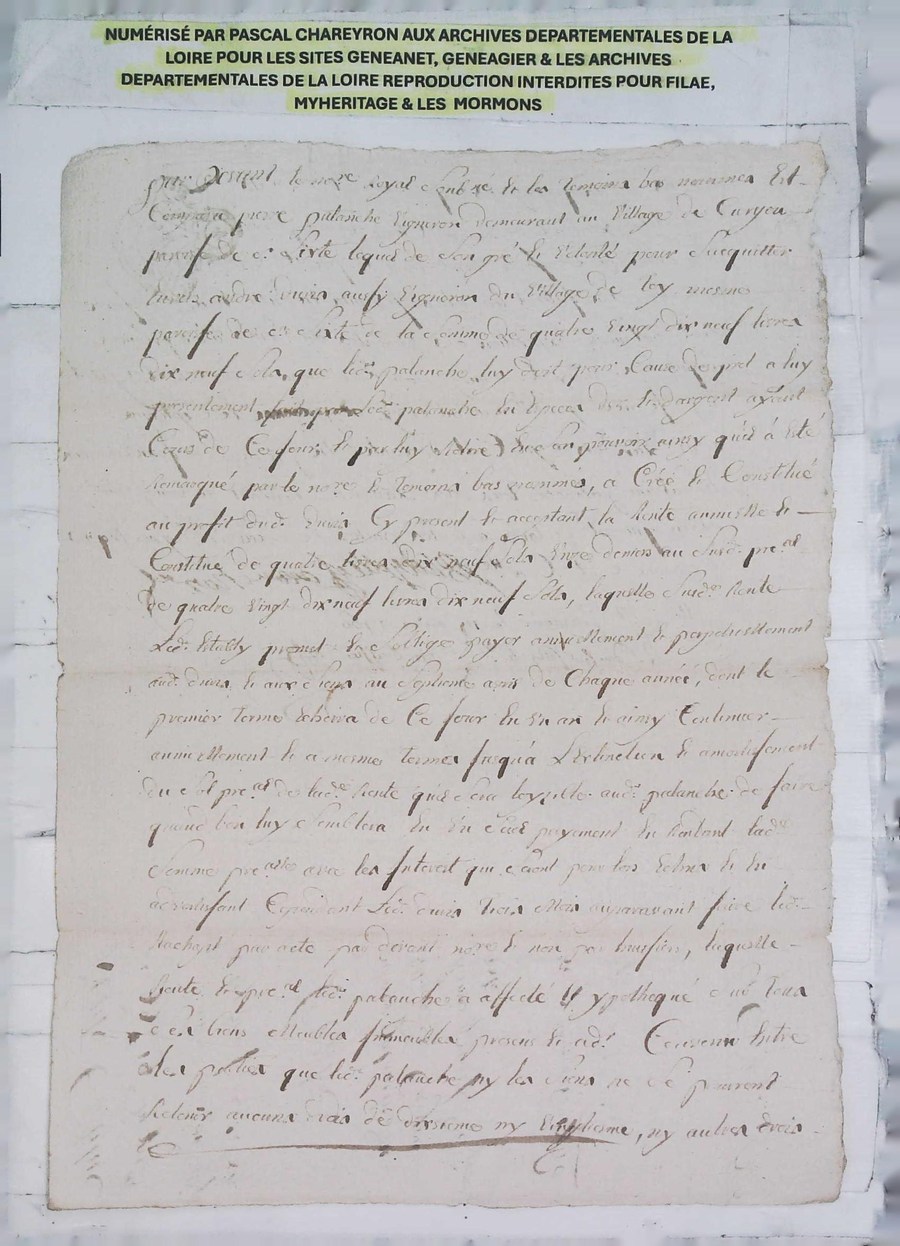 NUMÉRISÉ PAR PASCAL CHAREYRON AUX ARCHIVES DEPARTEMENTALES DE LA
LOIRE POUR LES SITES GENEANET, GENEAGIER & LES ARCHIVES
DEPARTEMENTALES DE LA LOIRE REPRODUCTION INTERDITES POUR FILAE,
MYHERITAGE & LES MORMONS
le no.re Royal et les temoins bas nommés Est
Comparu pierre palanche vigneron demeurant au village de
paroisse de st Sixte lequel de son gré et volonté pour s'acquitter
andré aussy vigneron du village de mesme
paroisse de st Sixte de la somme de quatre vingt dix neuf livres
dix neuf sols, que led. palanche luy doit pour Cause de pret a luy
presentement led. palanche en especes d'argent ayant
Cours de Ce jour, et par luy ainsy qu'il a été
Remarqué par le no.re et temoins bas nommés, a Créé et Constitué
au profit dud. Cy present et acceptant la Rente annuelle et
Constitué de quatre livres dix neuf sols onze deniers au susd. pr.al
de quatre vingt dix neuf livres dix neuf sols, laquelle susd. Rente
Led. promet et s'oblige payer annuellement et perpetuellement
aud. et aux siens au septieme de Chaque année, dont le
premier terme echeira de Ce jour en un an et ainsy Continuer
annuellement et a mesme termes jusqu'a L'extinction et amortissement
du pr.al de lad. Rente qu'il sera loysible aud. palanche de faire
quand bon luy semblera en un seul payement en lad.
somme pr.alle avec les Interest qui seront pour lors echus et en
advertissant Cependant Led. trois Mois auparavant faire led.
Rachept par acte par devant no.re et non par huissier, laquelle
Rente et pr.al led. palanche a affecté et ypothequé sur tous
ses biens Meubles Immeubles presens et Convenu Entre
les parties que led. palanche ny les siens ne se pourront
Retenir aucuns drois de dixieme ny Vingtieme, ny autres drois